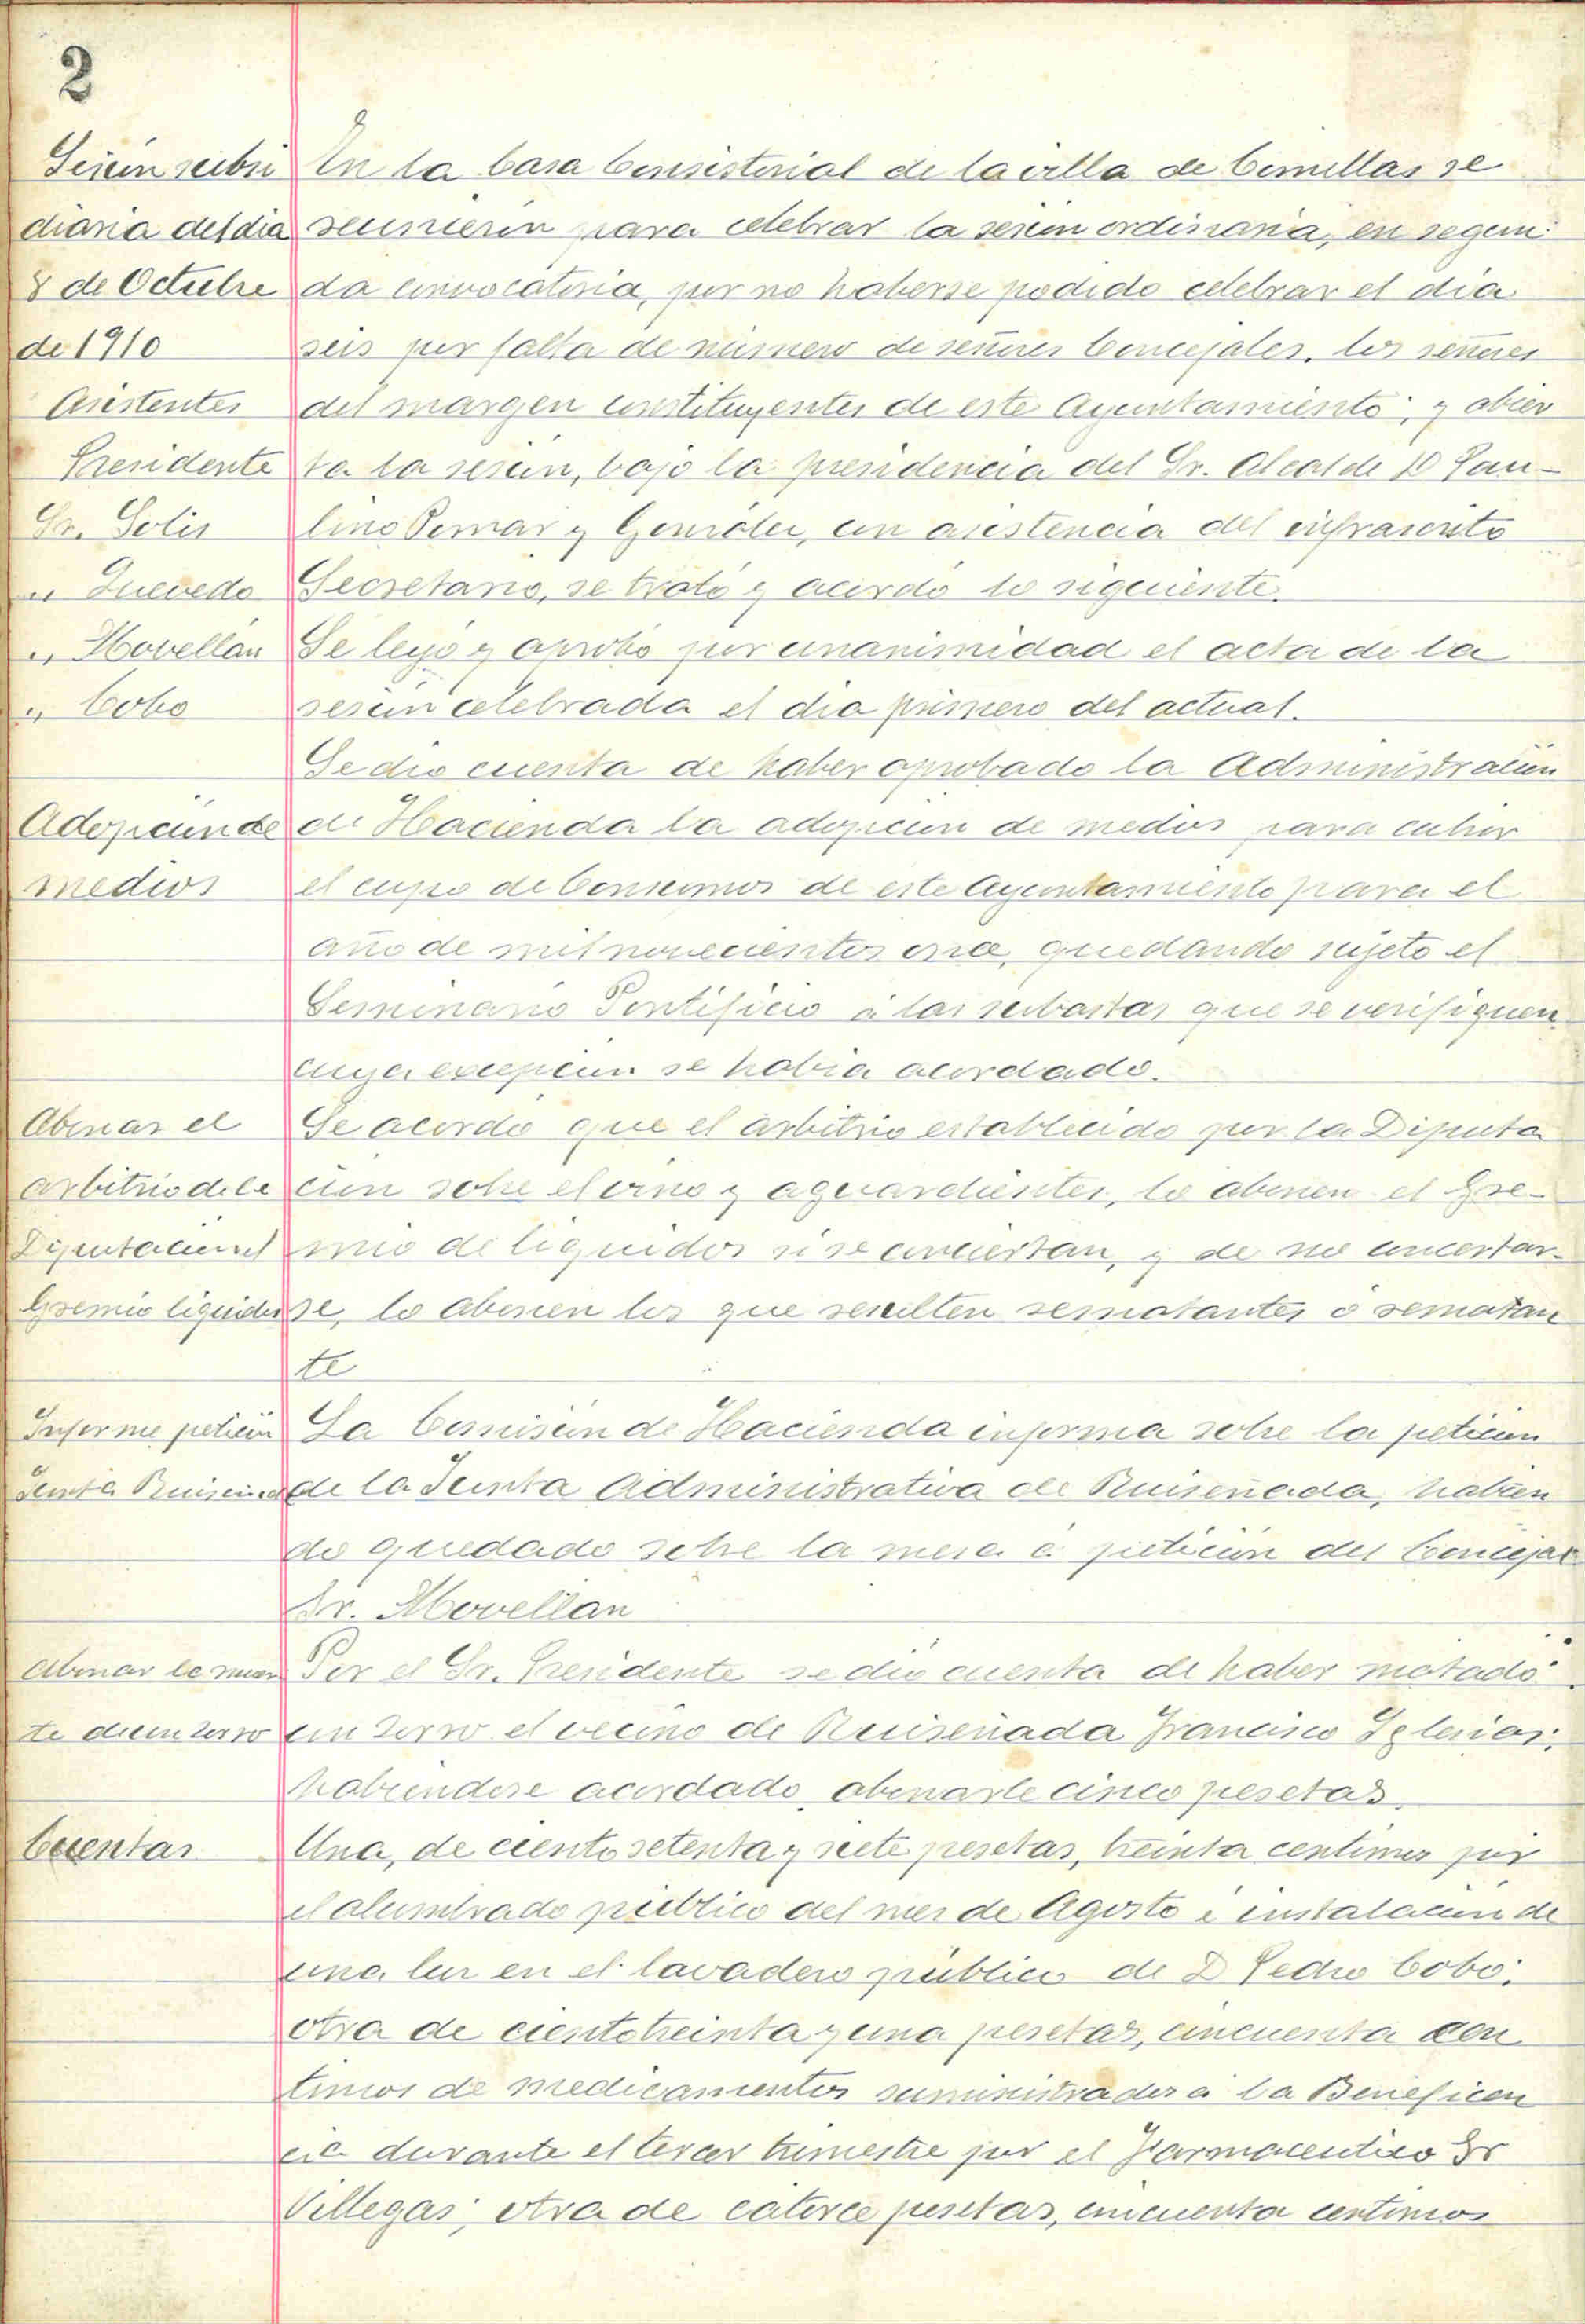 2
Sesion subsi
diaria del dia
8 de Octubre
de 1910
Asistentes
Presidente
Sr. Solis
" Quevedo
" Movellan
" Cobo
En la Casa Consistorial de la villa de Comillas se
reunieron para celebrar la sesion ordinaria, en segun
da convocatoria, por no haberse podido celebrar el dia
seis por falta de número de señores Concejales, los señores
del margen constituyentes de este Ayuntamiento; y abier
ta la sesion, bajo la presidencia del Sr. Alcalde D Pau-
lino Pomar y González, con asistencia del infrascrito
Secretario, se trató y acordó lo siguiente.
Se leyó y aprobó por unanimidad el acta de la
sesion celebrada el dia primero del actual.
Adopcion de
medios
Se dió cuenta de haber aprobado la Administracion
de Hacienda la adopcion de medios para cubrir
el cupo de Consumos de este Ayuntamiento para el
año de mil novecientos once, quedando sujeto el
Seminario Pontificio á las subastas que se verifiquen
cuya excepcion se habia acordado.
Abonar el
arbitrio de la
Diputacion el
Gremio liquidos
Se acordó que el arbitrio establecido por la Diputa
cion sobre el vino y aguardientes, lo abonen el Gre-
mio de liquidos si se conciertan, y de no concertar-
se, lo abonen los que resulten rematantes ó rematan
te
Informe peticion
Junta Ruiseñada
La Comision de Hacienda informa sobre la peticion
de la Junta Administrativa de Ruiseñada, habien
do quedado sobre la mesa á peticion del Concejal
Sr. Movellan
Abonar la muer
te de un zorro
Por el Sr. Presidente se dió cuenta de haber matado
un zorro el vecino de Ruiseñada Francisco Iglesias,
habiendose acordado abonarle cinco pesetas.
Cuentas
Una, de ciento setenta y siete pesetas, treinta centimos por
el alumbrado publico del mes de Agosto é instalacion de
una luz en el lavadero público de D Pedro Cobo;
otra de ciento treinta y una pesetas, cincuenta cen
timos de medicamentos suministrados á la Beneficen
cia durante el tercer trimestre por el Farmaceutico Sr
Villegas; otra de catorce pesetas, cincuenta centimos